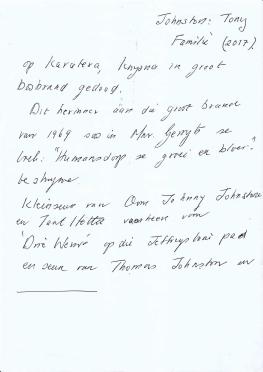 Johnston: Tony
Familie (2017)
op Karatera, Knysna in groot
bosbrand gedood.
Dit herinner aan die groot brande
van 1969 soos in Mnr. Gerryts se
boek: "Humansdorp se groei en bloei"
beskryf
Kleinseun van Oom Johnny Johnston
en Tant Hetta vanoor van
'Drie Werwe' op die Jeffreysbaai pad
en seun van Thomas Johnston en